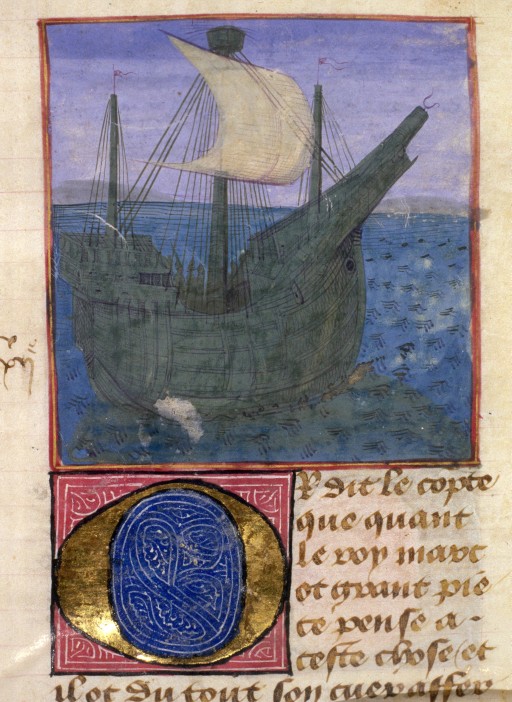 OR dit le conte
que quant
le roy marc
ot grant pie
ce pense a
ceste chose et
il ot du tout son cuer affer